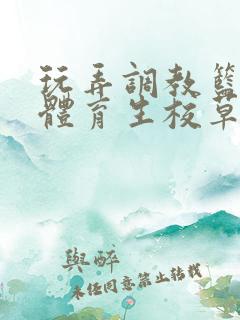 玩弄調教籃
體育生校草
與醉
未經同意禁止轉載